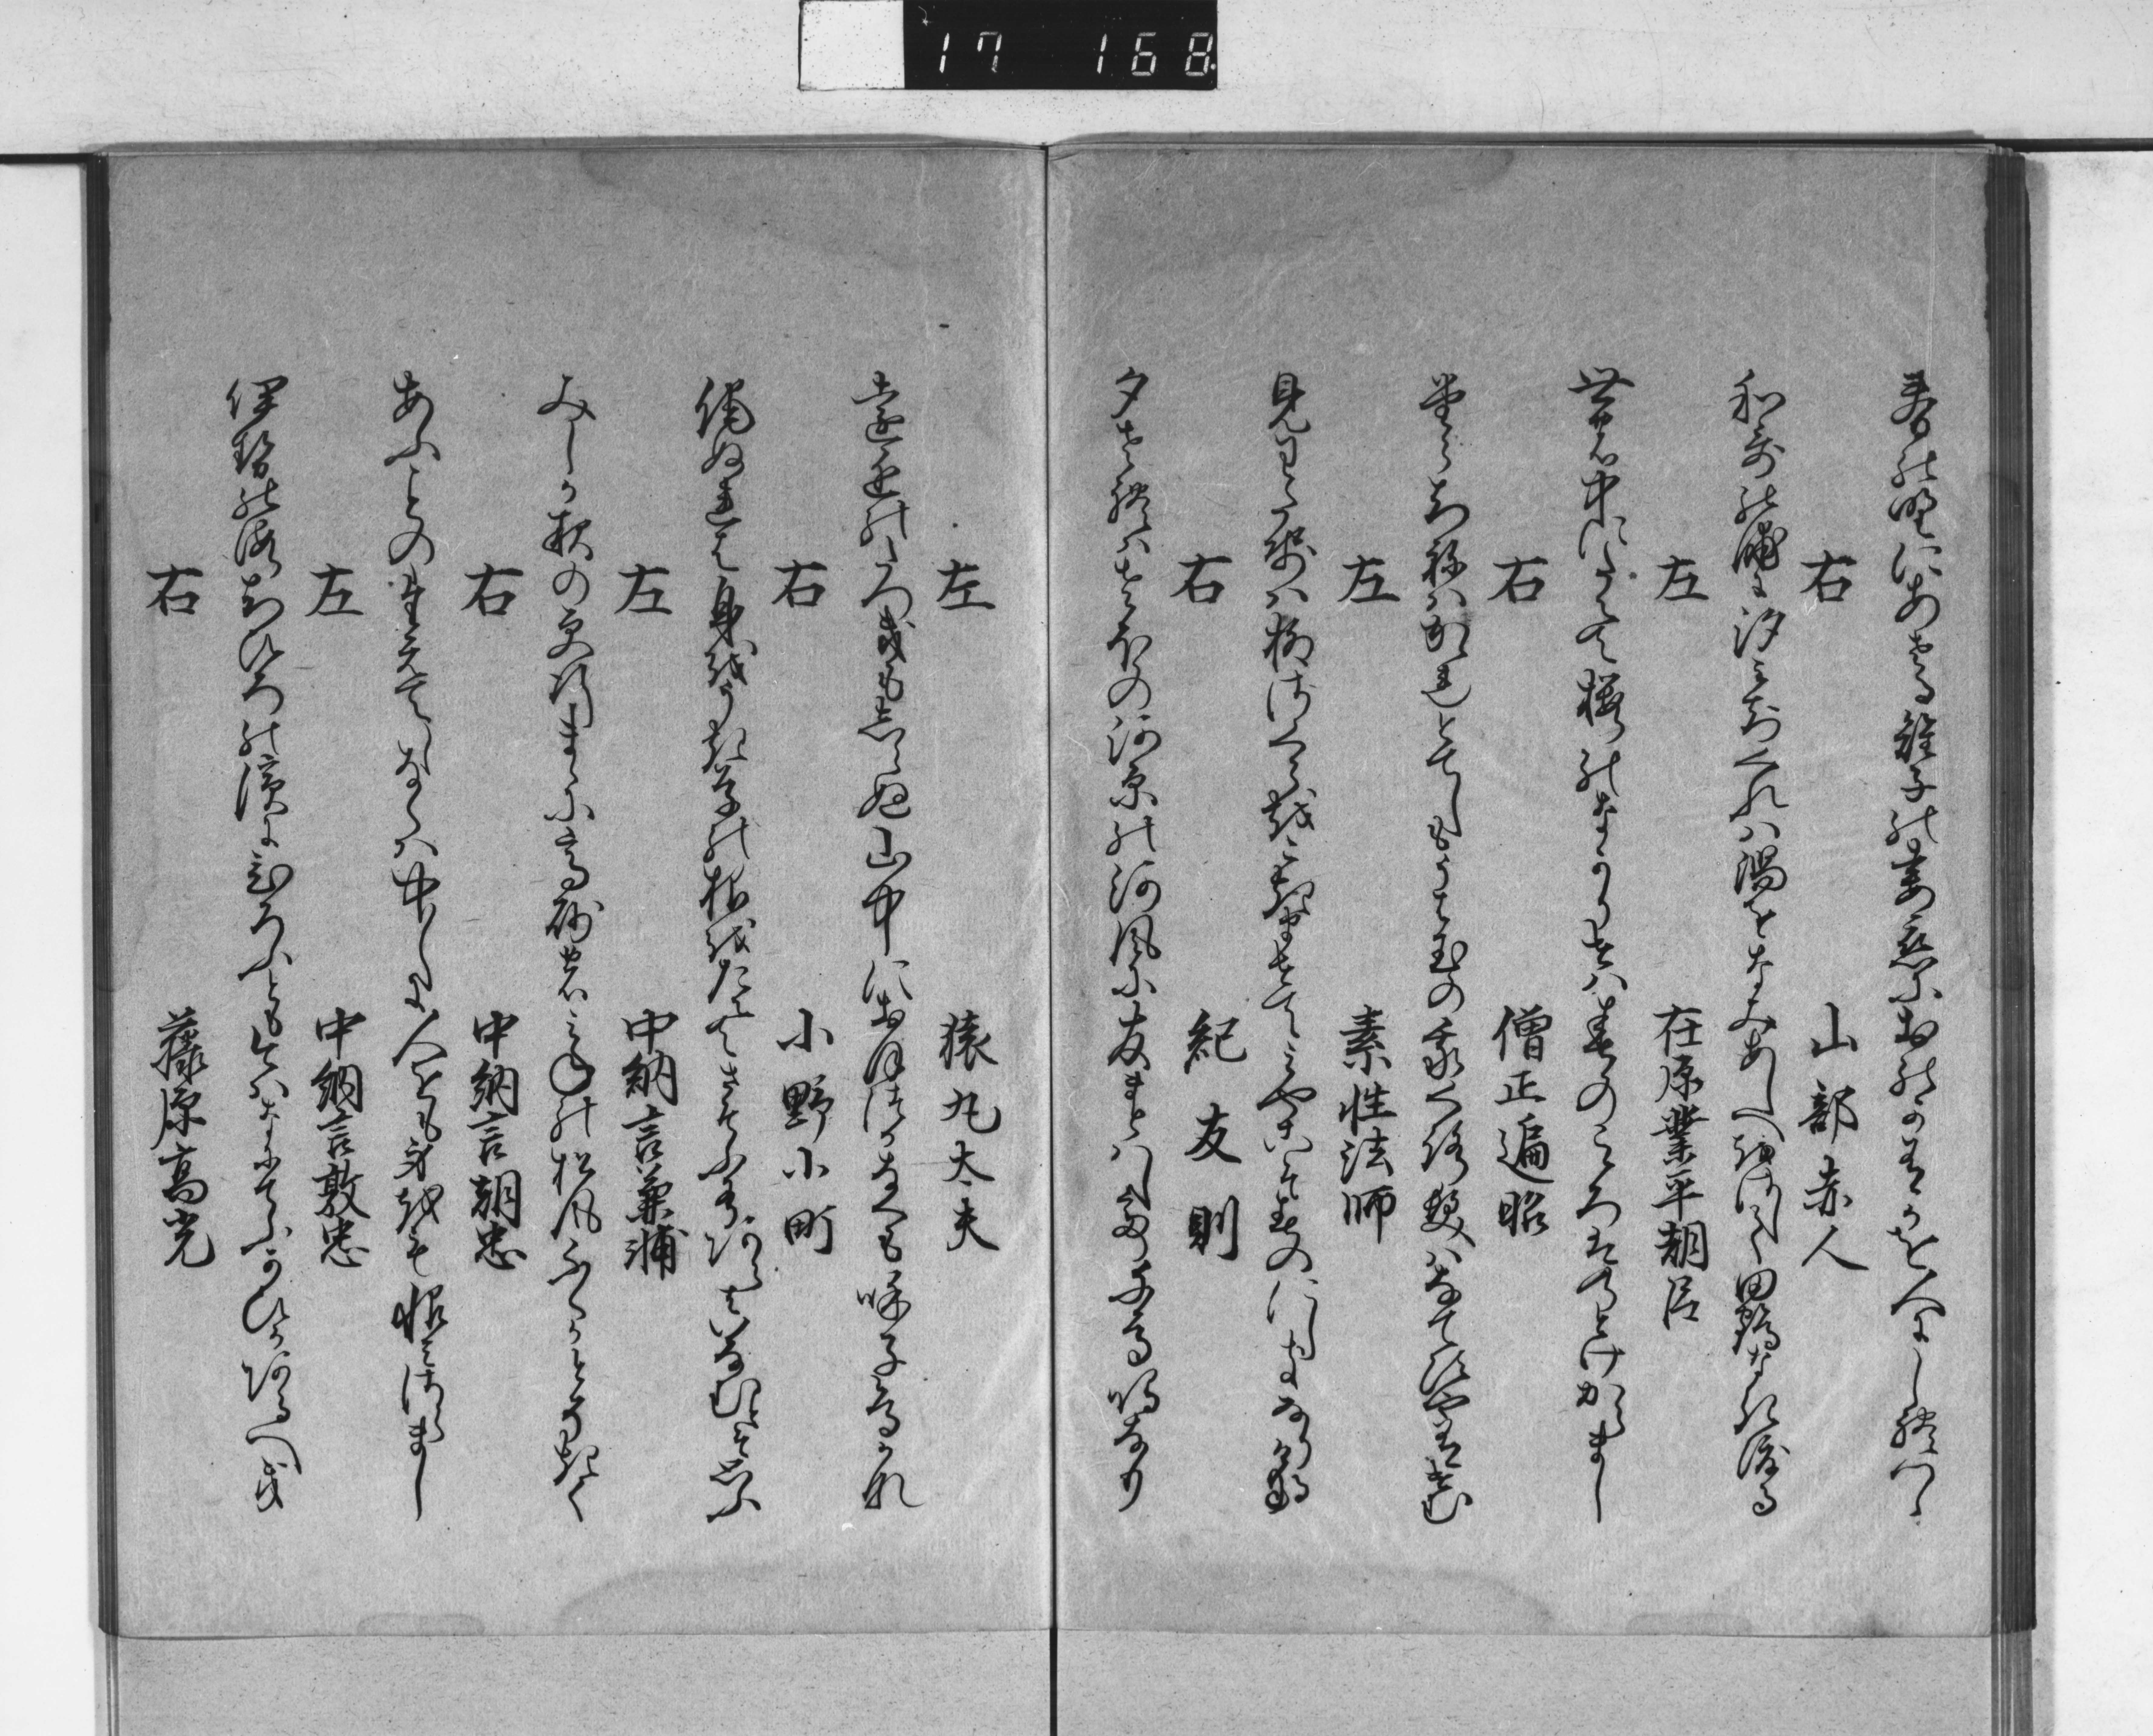 17 168
春の野にあさる雉子の妻恋におのかありかを人にしれつゝ
右 山部赤人
和哥の浦に汐みちくれハ潟をなみあしへをさして田鶴なき渡る
左 在原業平朝臣
世の中にたえて桜のなかりせハ春のこゝろはのとけからまし
右 僧正遍昭
たらちねハかゝれとてしもうは玉の我くろ髪ハなてすや有けむ
左 素性法師
見わたせハ柳さくらをこきませてみやこそ春のにしきなりける
右 紀友則
夕されハさほの河原の河風に友まとハして千鳥鳴なり
左 猿丸大夫
遠近のたつきもしらぬ山中におほつかなくも呼子鳥かな
右 小野小町
侘ぬれは身をうき草の根をたえてさそふ水あらはいなむとそ思ふ
左 中納言兼輔
みしか夜の更行まゝに高砂の峰の松風ふくかとそきく
右 中納言朝忠
あふことの絶てしなくハ中〳〵に人をも身をも恨さらまし
左 中納言敦忠
伊勢の海ちひろの濱にひろふとも今ハなにてふかひかあるへき
右 藤原高光